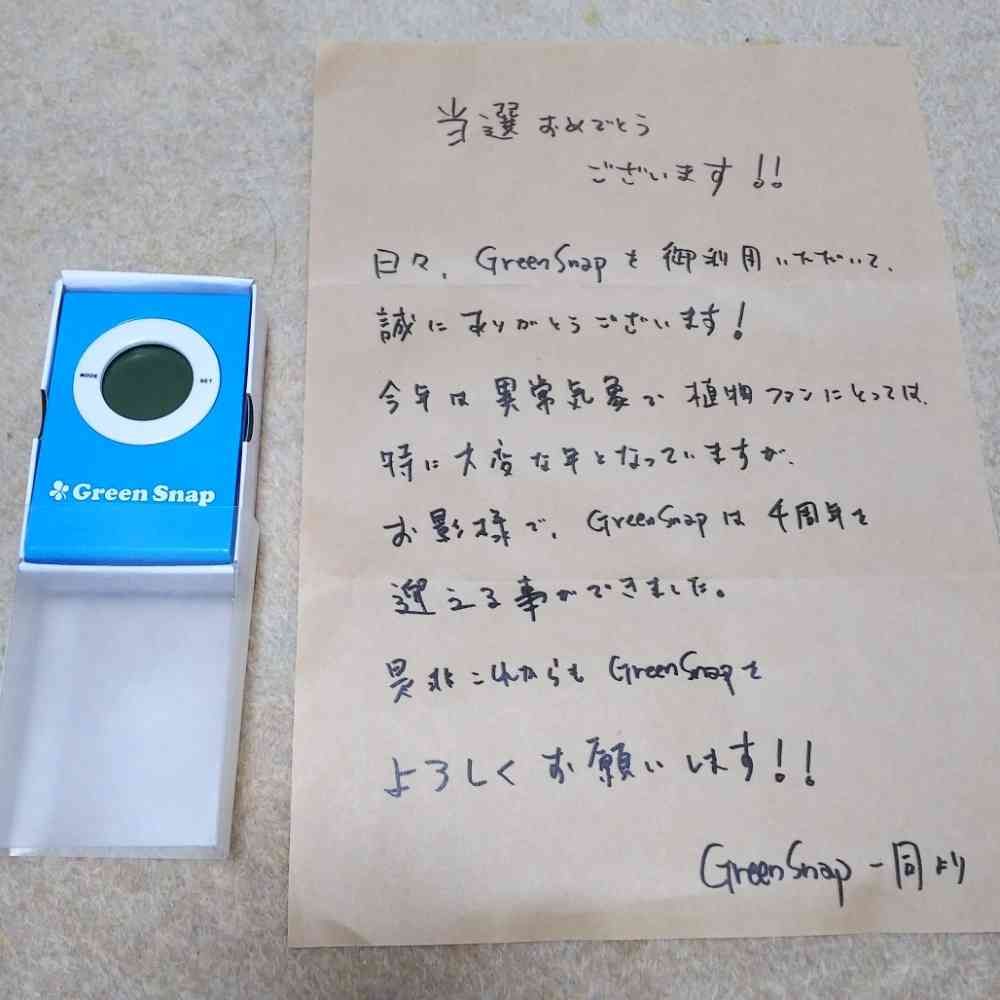 MODE
SET
Green Snap
当選おめでとう
ございます!!
日々、GreenSnapを御利用いただいて、
誠にありがとうございます!
今年は異常気象で植物ファンにとっては、
特に大変な年となっていますが、
お影様で、GreenSnapは4周年を
迎える事ができました。
是非これからもGreenSnapを
よろしくお願いします!!
GreenSnap一同より